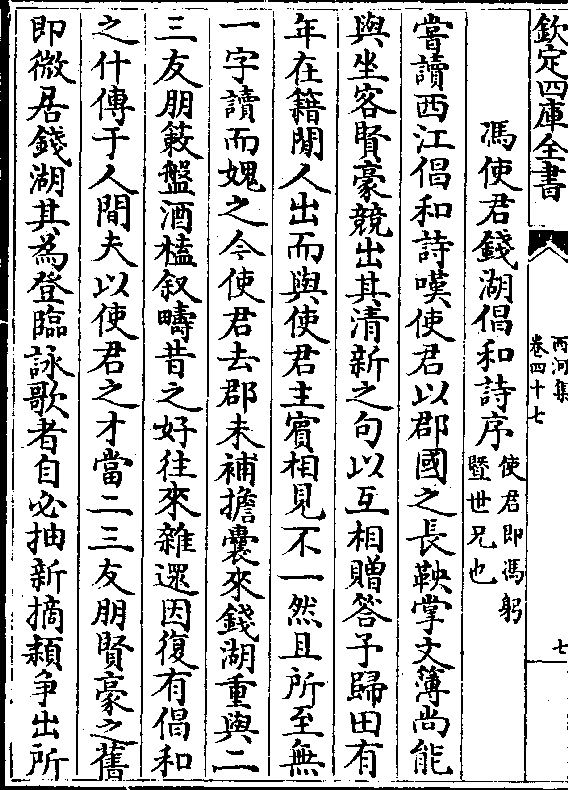 欽定四庫全書
西河集
卷四十七
七
馮使君錢湖倡和詩序
使君即馮躬
暨世兄也
嘗讀西江倡和詩嘆使君以郡國之長鞅掌文薄尚能
與坐客賢豪競出其清新之句以互相贈答予歸田有
年在籍閒人出而與使君主賓相見不一然且所至無
一字讀而媿之今使君去郡未補擔囊來錢湖重與二
三友朋䉤盤酒榼叙疇昔之好往來雜還因復有倡和
之什傳于人間夫以使君之才當二三友朋賢豪之舊
即微居錢湖其為登臨詠歌者自必抽新摘頴争出所